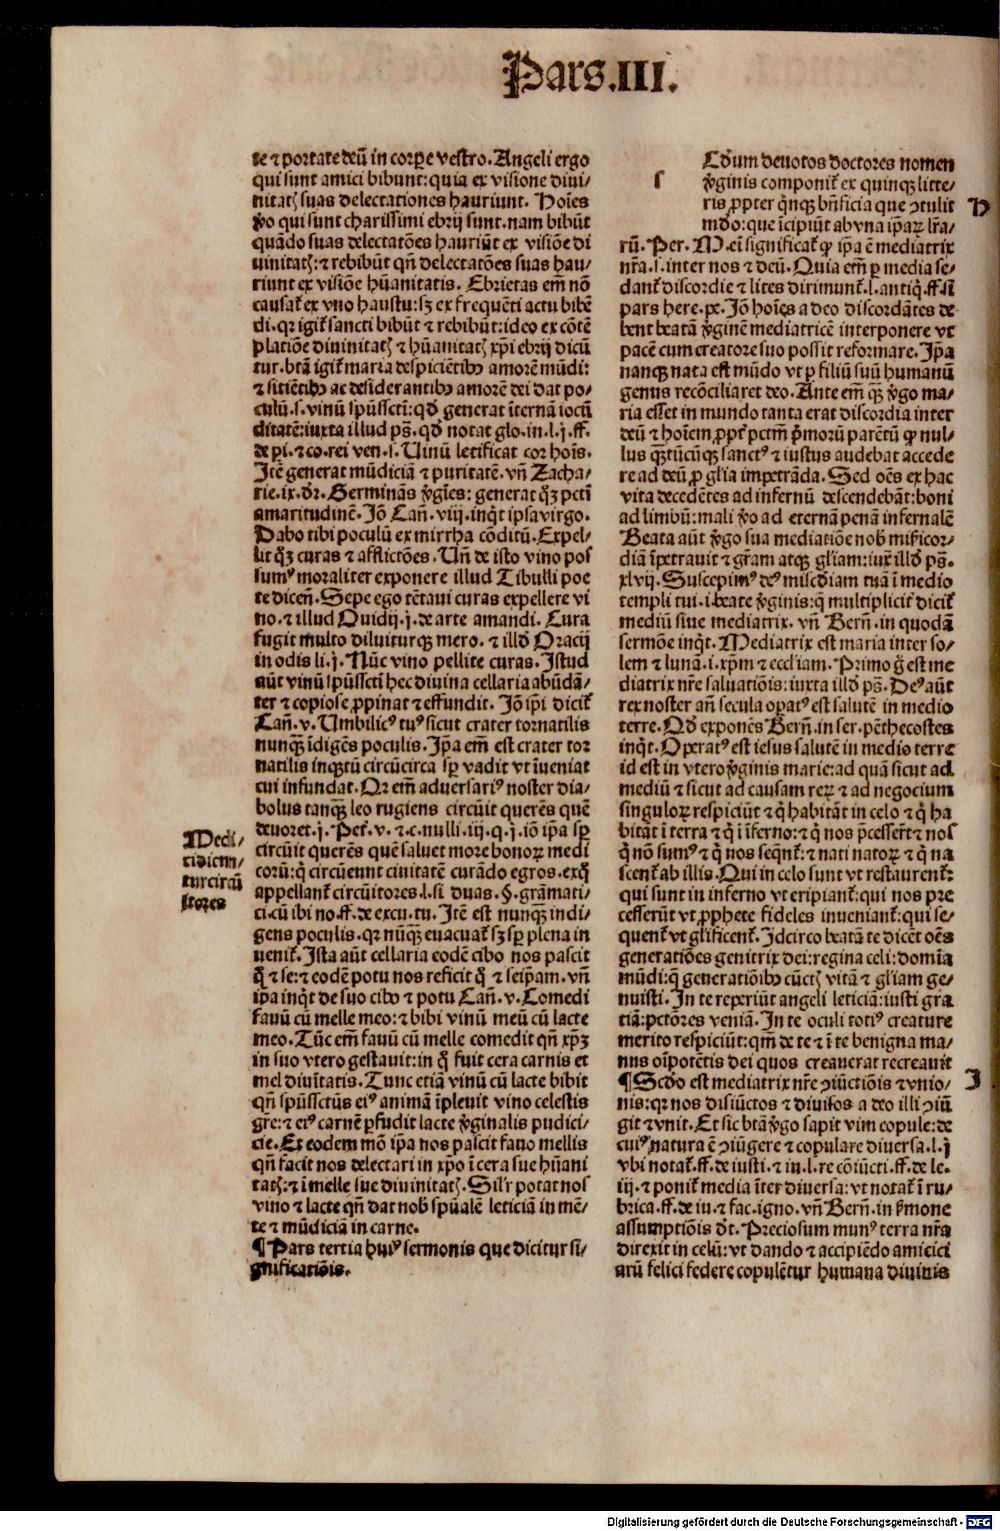 Pars.III.
te ⁊ portate deū in corꝑe vestro. Angeli ergo
qui sunt amici bibunt: quia ex visione diui/
nitatꝭ suas delectationes hauriunt. Hoīes
ꝟo qui sunt charissimi ebrij sunt. nam bibūt
quādo suas delectatōes hauriūt ex visiōe di
uinitatꝭ: ⁊ rebibūt qñ delectatōes suas hau/
riunt ex visiōe hūanitatis. Ebrietas em̄ nō
causat᷑ ex vno haustu: sꝫ ex frequēti actu bibē
di. qꝛ igit᷑ sancti bibūt ⁊ rebibūt: ideo ex cōtē
platiōe diuinitatꝭ ⁊ hūanitatꝭ xp̄i ebrij dicū
tur. btā igit᷑ maria despiciētibꝰ amorē mūdi:
⁊ sitiētibꝰ ac desiderantibꝰ amorē dei dat po/
culū. s. vinū spūssctī: qd̓ generat īternā iocū
ditatē: iuxta illud ps̄. qd̓ notat glo. in. l. j. ff.
de ꝑi. ⁊ co. rei ven. s. Uinū letificat cor hoīs.
Itē generat mūdiciā ⁊ puritatē. vñ Zacha/
rie. ix. dr̄. Germinās ꝟgīes: generat qͥꝫ pctī
amaritudinē. Iō Cañ. viij. inqͥt ipsa virgo.
Dabo tibi poculū ex mirrha cōditū. Expel/
lit qͥꝫ curas ⁊ afflictōes. Uñ de isto vino pos
sumꝰ moraliter exponere illud Tibulli poe
te diceñ. Sepe ego tētaui curas expellere vi
no. ⁊ illud Ouidij. j. de arte amandi. Cura
fugit multo diluiturqꝫ mero. ⁊ illd̓ Oracij
in odis li. j. Nūc vino pellite curas. Istud
aūt vinū spūssctī hec diuina cellaria abūdā/
ter ⁊ copiose ꝓpinat ⁊ effundit. Iō ip̄i dicit᷑
Cañ. v. Umbilicꝰ tuꝰ sicut crater tornatilis
nunqꝫ̄ īdigēs poculis. Ip̄a em̄ est crater tor
natilis inqꝫ̄tū circūcirca sꝑ vadit vt īueniat
cui infundat. Qꝛ em̄ aduersariꝰ noster dia/
bolus tanqꝫ̄ leo rugiens circūit querēs quē
deuoret. j. Pet᷑. v. ⁊. c. nulli. iij. q. j. iō ip̄a sꝑ
circūit querēs quē saluet more bonoꝝ medi
Medi/
ci dicun/
tur circū
itores
corū: q̄ circūeunt ciuitatē curādo egros. exqͦ
appellant᷑ circūitores. l. si duas. §. grāmati/
ci. cū ibi no. ff. de excu. tu. Itē est nunqꝫ̄ indi/
gens poculis. qꝛ nūqꝫ̄ euacuat᷑ sꝫ sꝑ plena in
uenit᷑. Ista aūt cellaria eodē cibo nos pascit
qͦ ⁊ se: ⁊ eodē potu nos reficit qͦ ⁊ seip̄am. vñ
ip̄a inqͥt de suo cibo ⁊ potu Cañ. v. Comedi
fauū cū melle meo: ⁊ bibi vinū meū cū lacte
meo. Tūc em̄ fauū cū melle comedit qñ xp̄ꝫ
in suo vtero gestauit: in qͦ fuit cera carnis et
mel diuītatis. Tunc etiā vinū cū lacte bibit
qñ spūssctūs eiꝰ animā īpleuit vino celestis
gr̄e: ⁊ eiꝰ carnē ꝑfudit lacte ꝟginalis pudici/
cie. Ex eodem mō ip̄a nos pascit fauo mellis
qñ facit nos delectari in xp̄o ī cera sue hūani
tatꝭ: ⁊ ī melle sue diuinitatꝭ. Silr̄ potat nos
vino ⁊ lacte qñ dat nob̓ spūalē leticiā in mē/
te ⁊ mūdiciā in carne.
¶ Pars tertia huiꝰ sermonis que dicitur si/
gnificatiōis.
s
Ecd̓um deuotos doctores nomen
ꝟginis componit᷑ ex quinqꝫ litte/
ris ꝓpter qͥnqꝫ bn̄ficia que ꝯtulit
H
mūdo: que īcipiūt ab vna ip̄aꝝ lr̄a/
rū. Per. M. eī significat᷑ ꝙ ip̄a ē mediatrix
nr̄a. s. inter nos ⁊ deū. Quia em̄ ꝑ media se/
dant᷑ discordie ⁊ lites dirimunt᷑. l. antiq̄. ff. si
pars here. pe. Iō hoīes a deo discordātes de
bent beatā ꝟginē mediatricē interponere vt
pacē cum creatore suo possit reformare. Ip̄a
nanqꝫ nata est mūdo vt ꝑ filiū suū humanū
genus recōciliaret deo. Ante em̄ qꝫ̄ ꝟgo ma/
ria esset in mundo tanta erat discordia inter
deū ⁊ hoīem ꝓpt᷑ pctm̄ p̄morū parētū ꝙ nul/
lus qꝫ̄tūcūqꝫ sanctꝰ ⁊ iustus audebat accede
re ad deū ꝓ gl̄ia impetrāda. Sed oēs ex hac
vita decedētes ad infernū descendebāt: boni
ad limbū: mali ꝟo ad eternā penā infernalē
Beata aūt ꝟgo sua mediatiōe nob̓ mīcor/
diā īpetrauit ⁊ gr̄am atqꝫ gl̄iam: iux̄ illd̓ ps̄.
xlvij. Suscepimꝰ deꝰ misc̄diam tuā ī medio
templi tui. i. beate ꝟginis: q̄ multiplicit᷑ dicit᷑
mediū siue mediatrix. vñ Berñ. in quodā
sermōe inqͥt. Mediatrix est maria inter so/
lem ⁊ lunā. i. xp̄m ⁊ eccl̄iam. Primo g̊ est me
diatrix nr̄e saluatiōis: iuxta illd̓ ps̄. Deꝰ aūt
rex noster añ secula oꝑatꝰ est salutē in medio
terre. Qd̓ exponēs Berñ. in ser. pēthecostes
inqͥt. Operatꝰ est iesus salutē in medio terre
id est in vtero ꝟginis marie: ad quā sicut ad
mediū ⁊ sicut ad causam reꝝ ⁊ ad negocium
singuloꝝ respiciūt ⁊ qͥ habitāt in celo ⁊ qͥ ha
bitāt ī terra ⁊ qͥ ī īferno: ⁊ qͥ nos p̄cesser̄t ⁊ nos
qͥ nō sumꝰ ⁊ qͥ nos seqn̄t᷑: ⁊ nati natoꝝ ⁊ qͥ na
scent᷑ ab illis. Qui in celo sunt vt restaurent᷑:
qui sunt in inferno vt eripiant᷑: qui nos pre
cesserūt vt ꝓphete fideles inueniant᷑: qui se/
quent᷑ vt gl̄ificent᷑. Idcirco beatā te dicēt oēs
generatiōes genitrix dei: regina celi: domīa
mūdi: q̄ generatiōibꝰ cūctꝭ vitā ⁊ gl̄iam ge/
nuisti. In te reperiūt angeli leticiā: iusti gra
tiā: pctōres veniā. In te oculi totiꝰ creature
merito respiciūt: qm̄ de te ⁊ ī te benigna ma/
nus oīpotētis dei quos creauerat recreauit
¶ Scd̓o est mediatrix nr̄e ꝯiūctiōis ⁊ vnio/
I
nis: qꝛ nos disiūctos ⁊ diuisos a deo illi ꝯiū
git ⁊ vnit. Et sic btā ꝟgo sapit vim copule: de
cuiꝰ natura ē ꝯiūgere ⁊ copulare diuersa. l. j
vbi notat᷑. ff. de iusti. ⁊ iu. l. re cōiūcti. ff. de le.
iij. ⁊ ponit᷑ media īter diuersa: vt notat᷑ ī ru/
brica. ff. de iu. ⁊ fac. igno. vñ Berñ. in s̄mone
assumptiōis dt̄. Preciosum munꝰ terra nr̄a
direxit in celū: vt dando ⁊ accipiēdo amicici
arū felici federe copulētur humana diuinis
Digitalisierung gefördert durch die Deutsche Forschungsgemeinschaft - DFG